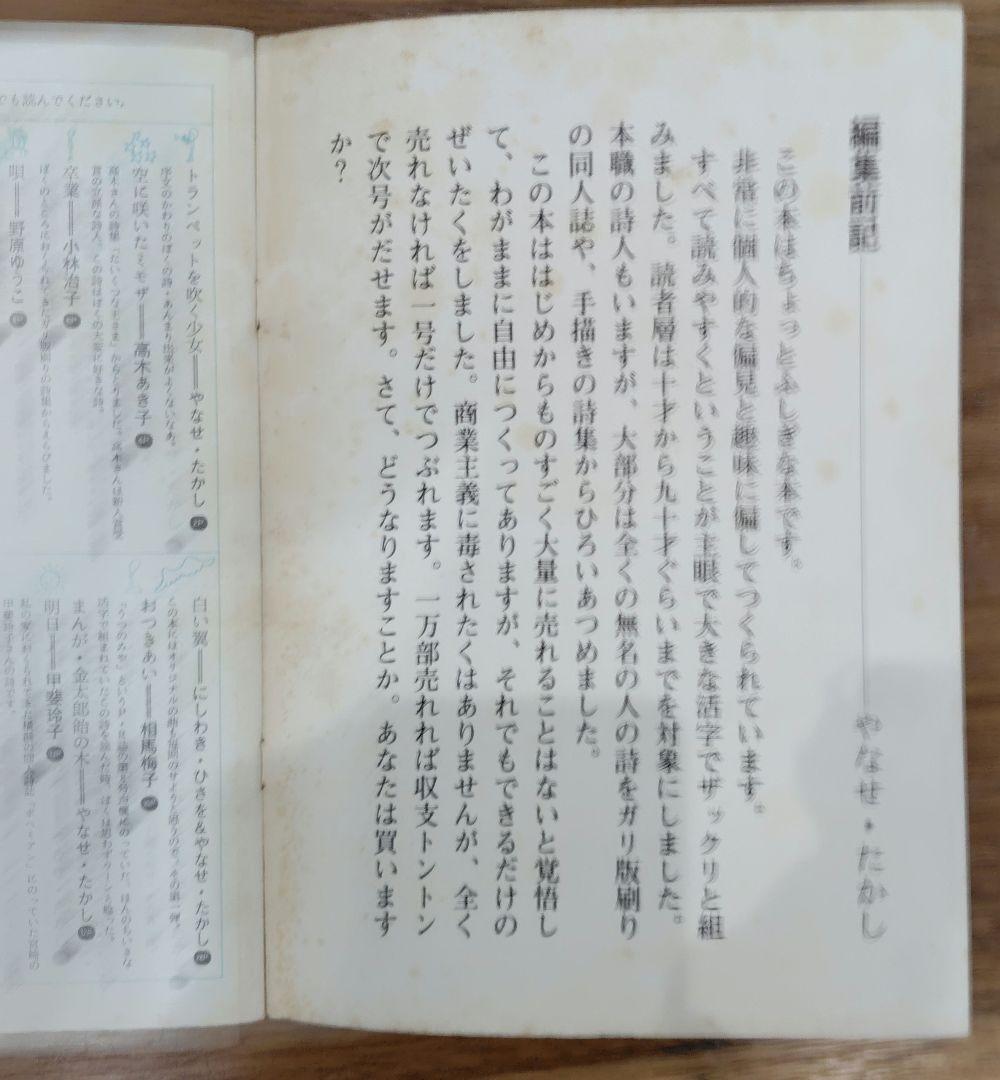 編集前記――やなせ・たかし
この本はちょっとふしぎな本です。
非常に個人的な偏見と趣味に偏してつくられています。
すべて読みやすくということが主眼で大きな活字でザックリと組
みました。読者層は十才から九十才ぐらいまでを対象にしました。
本職の詩人もいますが、大部分は全くの無名の人の詩をガリ版刷り
の同人誌や、手描きの詩集からひろいあつめました。
この本ははじめからものすごく大量に売れることはないと覚悟し
て、わがままに自由につくってありますが、それでもできるだけの
ぜいたくをしました。商業主義に毒されたくはありませんが、全く
売れなければ一号だけでつぶれます。一万部売れれば収支トントン
で次号がだせます。さて、どうなりますことか。あなたは買います
か？
でも読んでください。
トランペットを吹く少女――やなせ・たかし
序文のかわりのぼくの詩・あんまり出来がよくないなあ。
空に咲いたミモザ――高木あき子
卒業――小林治子
唄――野原ゆうこ
白い翼――にしわき・ひさを&やなせ・たかし
おつきあい――相馬梅子
まんが・金太郎飴の木――やなせ・たかし
明日――甲斐玲子
甲斐玲子さんの詩です。